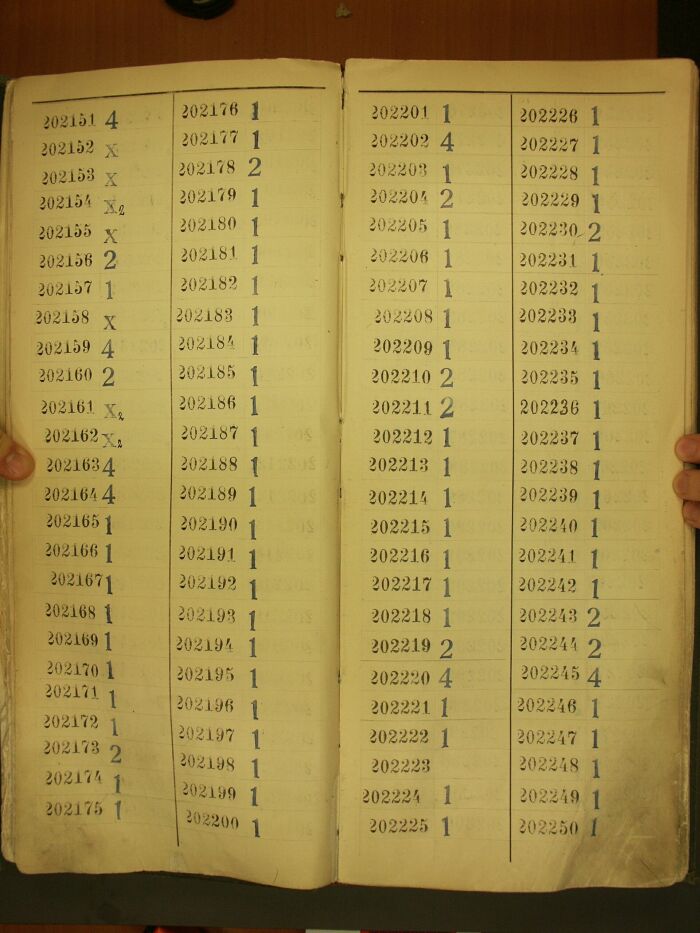 202151 4
202152 X
202153 X
202154 X2
202155 X
202156 2
202157 1
202158 X
202159 4
202160 2
202161 X2
202162 X2
202163 4
202164 4
202165 1
202166 1
202167 1
202168 1
202169 1
202170 1
202171 1
202172 1
202173 2
202174 1
202175 1
202176 1
202177 1
202178 2
202179 1
202180 1
202181 1
202182 1
202183 1
202184 1
202185 1
202186 1
202187 1
202188 1
202189 1
202190 1
202191 1
202192 1
202193 1
202194 1
202195 1
202196 1
202197 1
202198 1
202199 1
202200 1
202201 1
202202 4
202203 1
202204 2
202205 1
202206 1
202207 1
202208 1
202209 1
202210 2
202211 2
202212 1
202213 1
202214 1
202215 1
202216 1
202217 1
202218 1
202219 2
202220 4
202221 1
202222 1
202223
202224 1
202225 1
202226 1
202227 1
202228 1
202229 1
202230 2
202231 1
202232 1
202233 1
202234 1
202235 1
202236 1
202237 1
202238 1
202239 1
202240 1
202241 1
202242 1
202243 2
202244 2
202245 4
202246 1
202247 1
202248 1
202249 1
202250 1